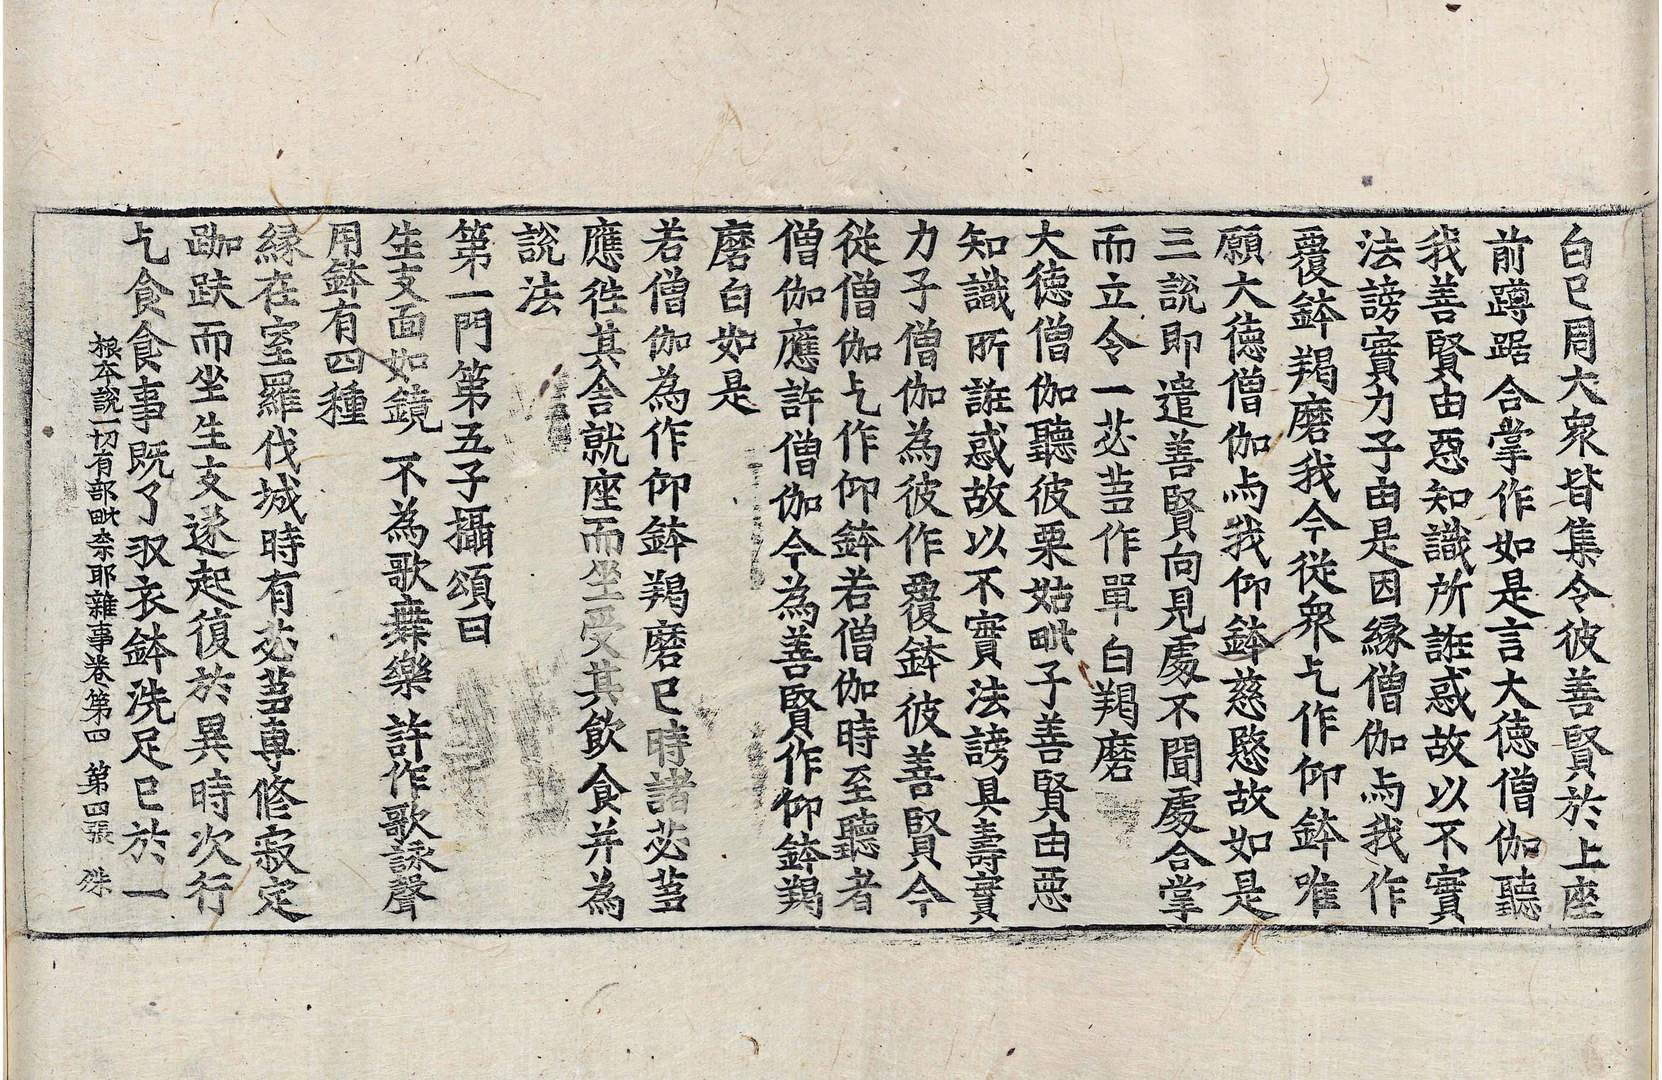 白已周大衆皆集令彼善賢於上座
前蹲踞合掌作如是言大德僧伽聽
我善賢由惡知識所誑惑故以不實
法謗實力子由是因縁僧伽与我作
覆鉢羯磨我今從衆乞作仰鉢唯
願大德僧伽与我仰鉢慈愍故如是
三說即遣善賢向見處不聞處合掌
而立令一苾蒭作單白羯磨
大德僧伽聽彼栗姑毗子善賢由惡
知識所誑惑故以不實法謗具壽實
力子僧伽為彼作覆鉢彼善賢今
從僧伽乞作仰鉢若僧伽時至聽者
僧伽應許僧伽今為善賢作仰鉢羯
磨白如是
若僧伽為作仰鉢羯磨已時諸苾蒭
應徃其舍就座而坐受其飲食并為
說法
第一門第五子攝頌曰
生支面如鏡 不為歌舞樂 許作歌詠聲
用鉢有四種
縁在室羅伐城時有苾蒭專修寂定
跏趺而坐生支遂起復於異時次行
乞食食事既了収衣鉢洗足已於一
根本說一切有部毗奈耶雜事卷第四 第四張 殊